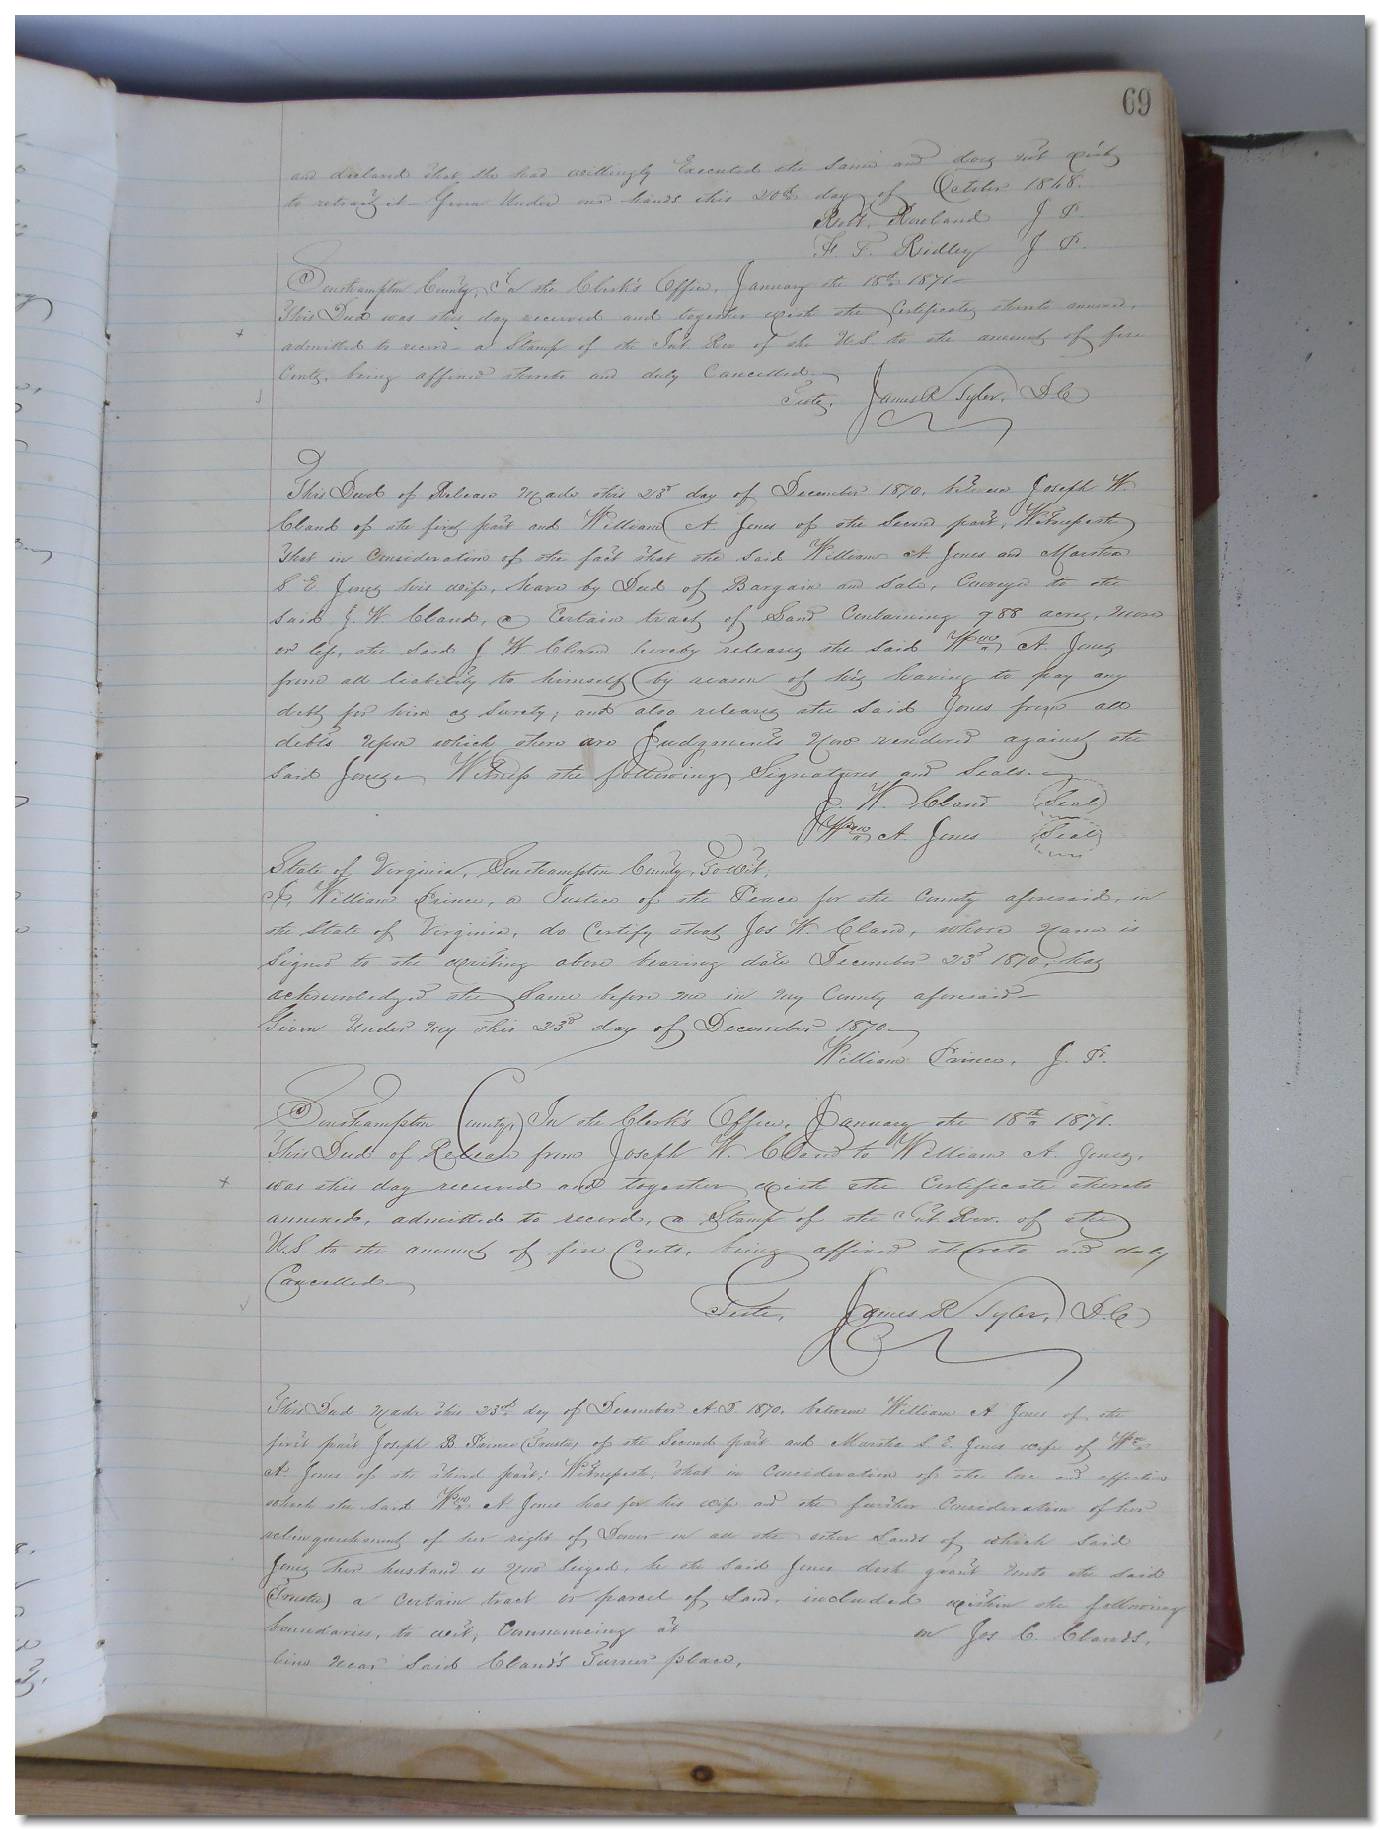 69
and declared that she had willingly Executed the same and does not wish
to retract it - Given Under our hands this 20th day of October 1848.
Robt. Rowland J P.
F. Ridley J P.
Southampton County, In the Clerk's Office, January the 18th 1871-
This Deed was this day received and together with the Certificates thereto annexed,
admitted to record - a Stamp of the Int. Rev of the U.S to the amount of five
Cents, being affixed thereto and duly Cancelled.
Teste, James R Tyler, D.C
This Deed of Release Made this 23d day of December 1870, between Joseph W.
Claud of the first part and William A Jones of the Second part, Witnesseth
That in Consideration of the fact that the said William A. Jones and Martha
S E Jones his wife, have by Deed of Bargain and Sale, Conveyed to the
said J. W. Claud, a Certain tract of Land Containing 788 acres, more
or less, the said J W Claud hereby releases the said Wm A. Jones
from all liability to himself by reason of his having to pay any
debts for him as Surety; and also releases the said Jones from all
debts upon which there are Judgments Now rendered against the
said Jones. Witness the following Signatures and Seals.
J. W. Claud (Seal)
Wm A. Jones (Seal)
State of Virginia, Southampton County, To wit;
I, William Prince, a Justice of the Peace for the County aforesaid, in
the State of Virginia, do Certify that Jos W. Claud, whose Name is
Signed to the writing above bearing date December 23d 1870, has
acknowledged the Same before me in my County aforesaid-
Given Under My this 23d day of December 1870-
William Prince, J. P.
Southampton County, In the Clerk's Office, January the 18th 1871.
This Deed of Release from Joseph W. Claud to William A. Jones,
was this day received and together with the Certificate thereto
annexed, admitted to record, a Stamp of the Int. Rev. of the
U.S to the amount of five Cents, being affixed thereto and duly
Cancelled-
Teste, James R Tyler, D.C
This Deed Made this 23rd day of December A.D. 1870, between William A Jones of the
first part Joseph B. Prince (Trustee) of the Second part and Martha S. E. Jones wife of Wm
A. Jones of the third part; Witnesseth; that in Consideration of the love and affection
which the said Wm A Jones has for his wife and the further Consideration of her
relinquishment of her right of Dower in all the other Lands of which said
Jones her husband is Now Seized, he the said Jones doth grant Unto the said
(Trustee) a Certain tract or parcel of Land, included within the following
boundaries, to wit; Commencing at on Jos C. Claud's,
line near said Claud's Turner place,